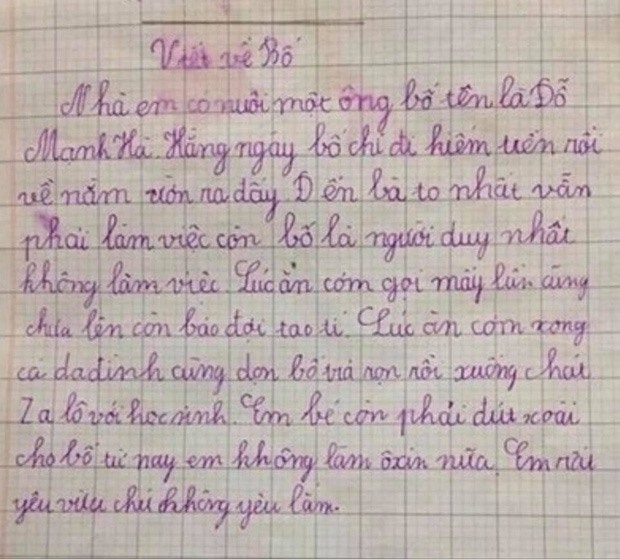 Viết về Bố
Nhà em có nuôi một ông bố tên là Đỗ
Mạnh Hà. Hằng ngày bố chỉ đi kiếm tiền rồi
về nằm ườn ra đấy. Đ ến bà to nhất vẫn
phải làm việc còn bố là người duy nhất
không làm việc. Lúc ăn cơm gọi mấy lần cũng
chưa lên còn bảo đợi tao tí. Lúc ăn cơm xong
cả da đình cùng dọn bố trả rọn rồi xuống chát
Za lô với học sinh. Em bé còn phải đút xoài
cho bố từ nay em không làm ôxin nữa. Em rất
yêu chứ không yêu lắm.